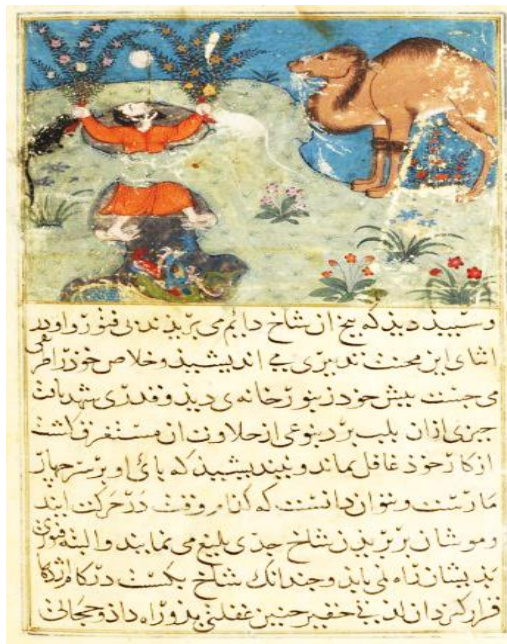 وسبیذ دیذ که بیخ ان شاخ دایم می بریذند بی فتور واو در
اثنای این محنت تدبیری می اندیشیذ وخلاص خوذ را طریقی
می جست بیش خوذ زنبور خانه ی دیذ وقدری شهد یافت
چیزی ازان بلب برد بنوعی از حلاوت ان مستغرق گشت
از کار خوذ غافل بماند ونیندیشیذ که بای او بر سر چهار
مارست ونتوان دانست که کدام وقت در حرکت ایند
وموشان در بریذن شاخ جدی بلیغ می نمایند والبته فتوری
بذیشان راه نمی یابذ وچندانک شاخ بکست در کام اژدها
قرار کرد ان لذتی حقیر چنین غفلتی بدو راه داذ وحجابی